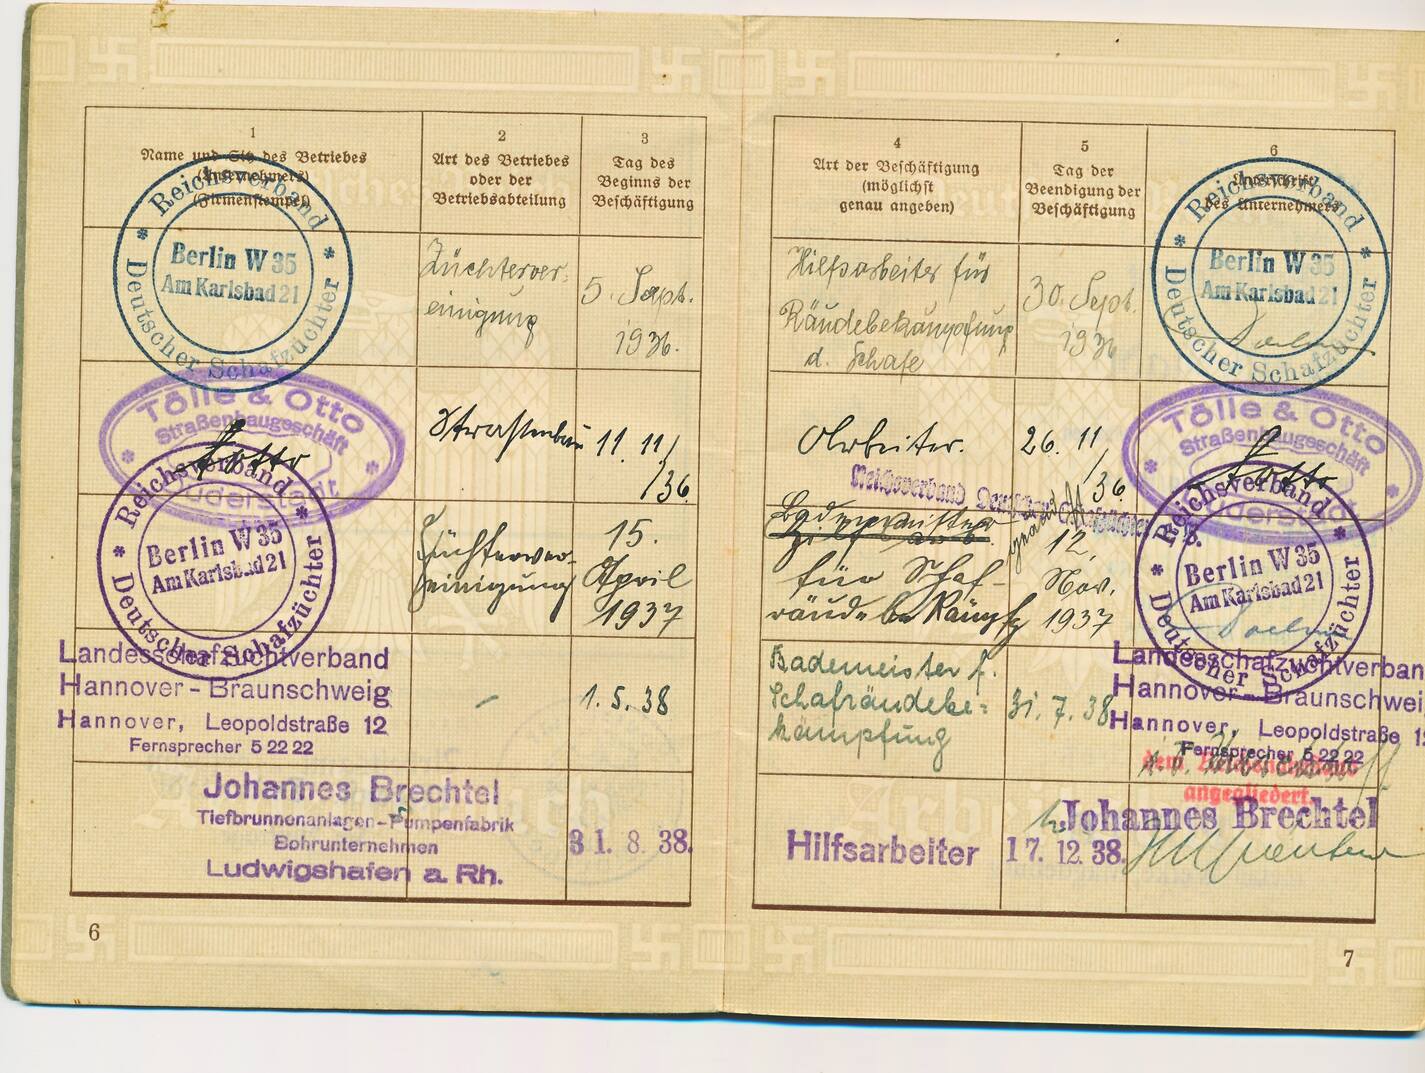 1
Name und Sitz des Betriebes
(Unternehmers)
(Firmenstempel)
2
Art des Betriebes
oder der
Betriebsabteilung
3
Tag des
Beginns der
Beschäftigung
4
Art der Beschäftigung
(möglichst
genau angeben)
5
Tag der
Beendigung der
Beschäftigung
6
Unterschrift
des Unternehmers
Reichsverband
Deutscher Schafzüchter
Berlin W 35
Am Karlsbad 21
Züchterver-
einigung
5. Sept.
1936.
Hilfsarbeiter für
Räudebekämpfung
d. Schafe
30. Sept.
1936
Reichsverband
Deutscher Schafzüchter
Berlin W 35
Am Karlsbad 21
Tölle & Otto
Straßenbaugeschäft
Duderstadt
Straßenbau
11. 11/
/36
Arbeiter.
26. 11
/36.
Tölle & Otto
Straßenbaugeschäft
Duderstadt
Reichsverband
Deutscher Schafzüchter
Berlin W 35
Am Karlsbad 21
Züchterver-
einigung
15.
April
1937
Reichsverband Deutscher Schafzüchter
Bademeister
für Schaf-
räudebekämpfg
12.
Nov.
1937
Reichsverband
Deutscher Schafzüchter
Berlin W 35
Am Karlsbad 21
Landesschafzuchtverband
Hannover - Braunschweig
Hannover, Leopoldstraße 12
Fernsprecher 5 22 22
-
1. 5. 38
Bademeister f.
Schafräudebe-
kämpfung
31. 7. 38
Landesschafzuchtverban
Hannover - Braunschwei
Hannover, Leopoldstraße 12
Fernsprecher 5 22 22
angegliedert
Johannes Brechtel
Tiefbrunnenanlagen-Pumpenfabrik
Bohrunternehmen
Ludwigshafen a. Rh.
31. 8. 38.
Hilfsarbeiter
17. 12. 38.
Johannes Brechtel
6
7